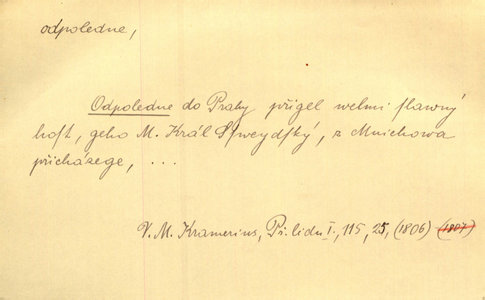 odpoledne,
Odpoledne do Prahy přigel welmi slawný
host, geho M. Král Šweydský, z Mnichowa
přicházege, ...
V. M. Kramerius, Př. lidu I., 115, 25, (1806) (1807)